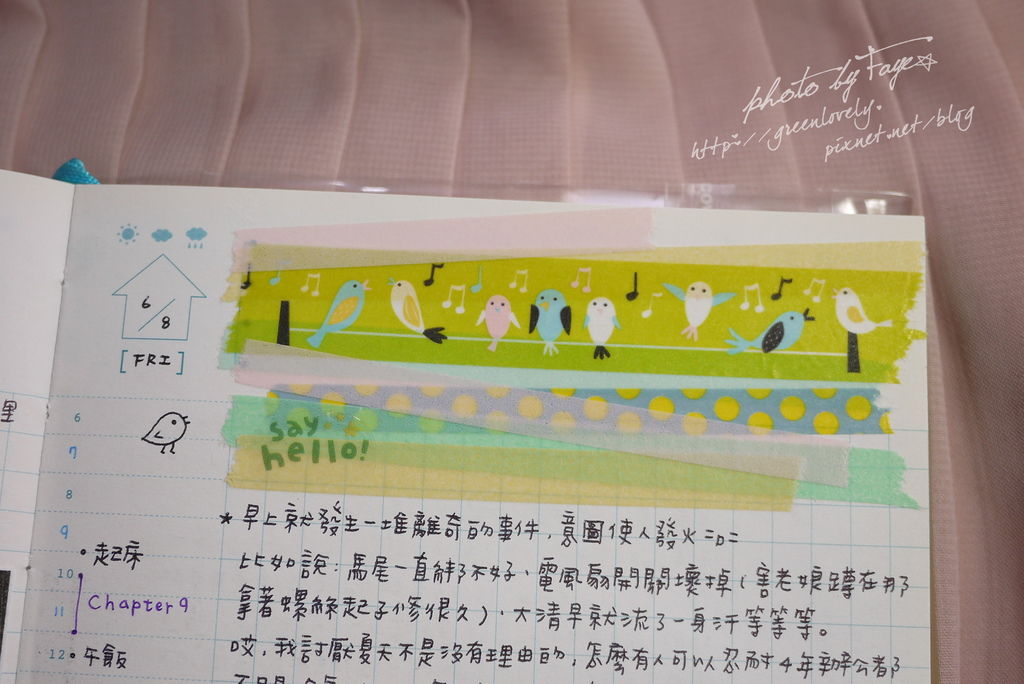 photo by Faye
http://greenlovely.
pixnet.net/blog
6/8
[FRI]
say
hello!
里
6
7
8
9
10
11
12
起床
Chapter 9
午飯
★早上就發生一堆離奇的事件，意圖使人發火=口=
比如說：馬尾一直綁不好、電風扇開關壞掉(害老娘蹲在那
拿著螺絲起子修很久)、大清早就流了一身汗等等等。
哎，我討厭夏天不是沒有理由的，怎麼有人可以忍耐4年辦公都